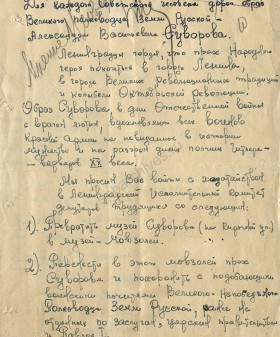 Для каждого Советского человека дорог образ
Великого полководца Земли Русской,
Александра Васильевича Суворова.
Ленинградцы горды, что прах Народного
героя покоится в городе Ленина,
в городе Великих революционных традиций
и колыбели Октябрьской революции.
Образ Суворова в дни Отечественной войны
с врагом лютым, вдохновлял всех воинов
красной Армии на невиданное в истории
мужество и на разгром диких полчищ Гитлера-
варваров XX века.
Мы просим Вас войти с ходатайством
в Ленинградский Исполнительный комитет
депутатов трудящихся со следующим:
1). Превратить музей Суворова (на Кирочной ул)
в музей-Мавзолей.
2). Перенести в этот мавзолей прах
Суворова и похоронить с подобающими
воинскими почестями Великого
Полководца Земли Русской, ранее не
отданных по заслугам, царским правительством